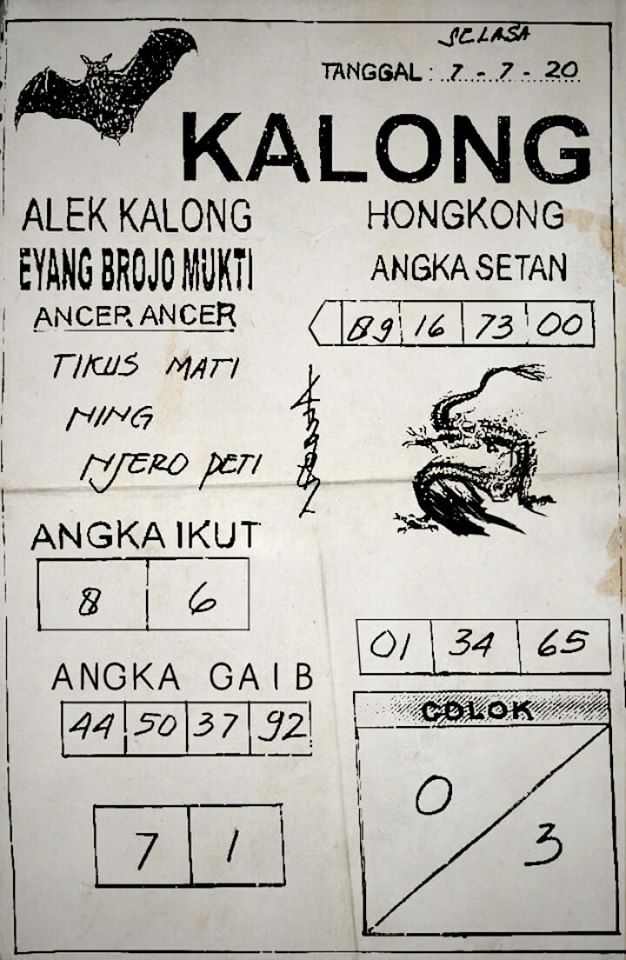 SELASA
TANGGAL : 7 - 7 - 20
KALONG
ALEK KALONG
EYANG BROJO MUKTI
ANCER ANCER
TIKUS MATI
NING
NJERO PETI
HONGKONG
ANGKA SETAN
89 16 73 00
ANGKA IKUT
8 6
ANGKA GAIB
44 50 37 92
7 1
01 34 65
COLOK
0
3